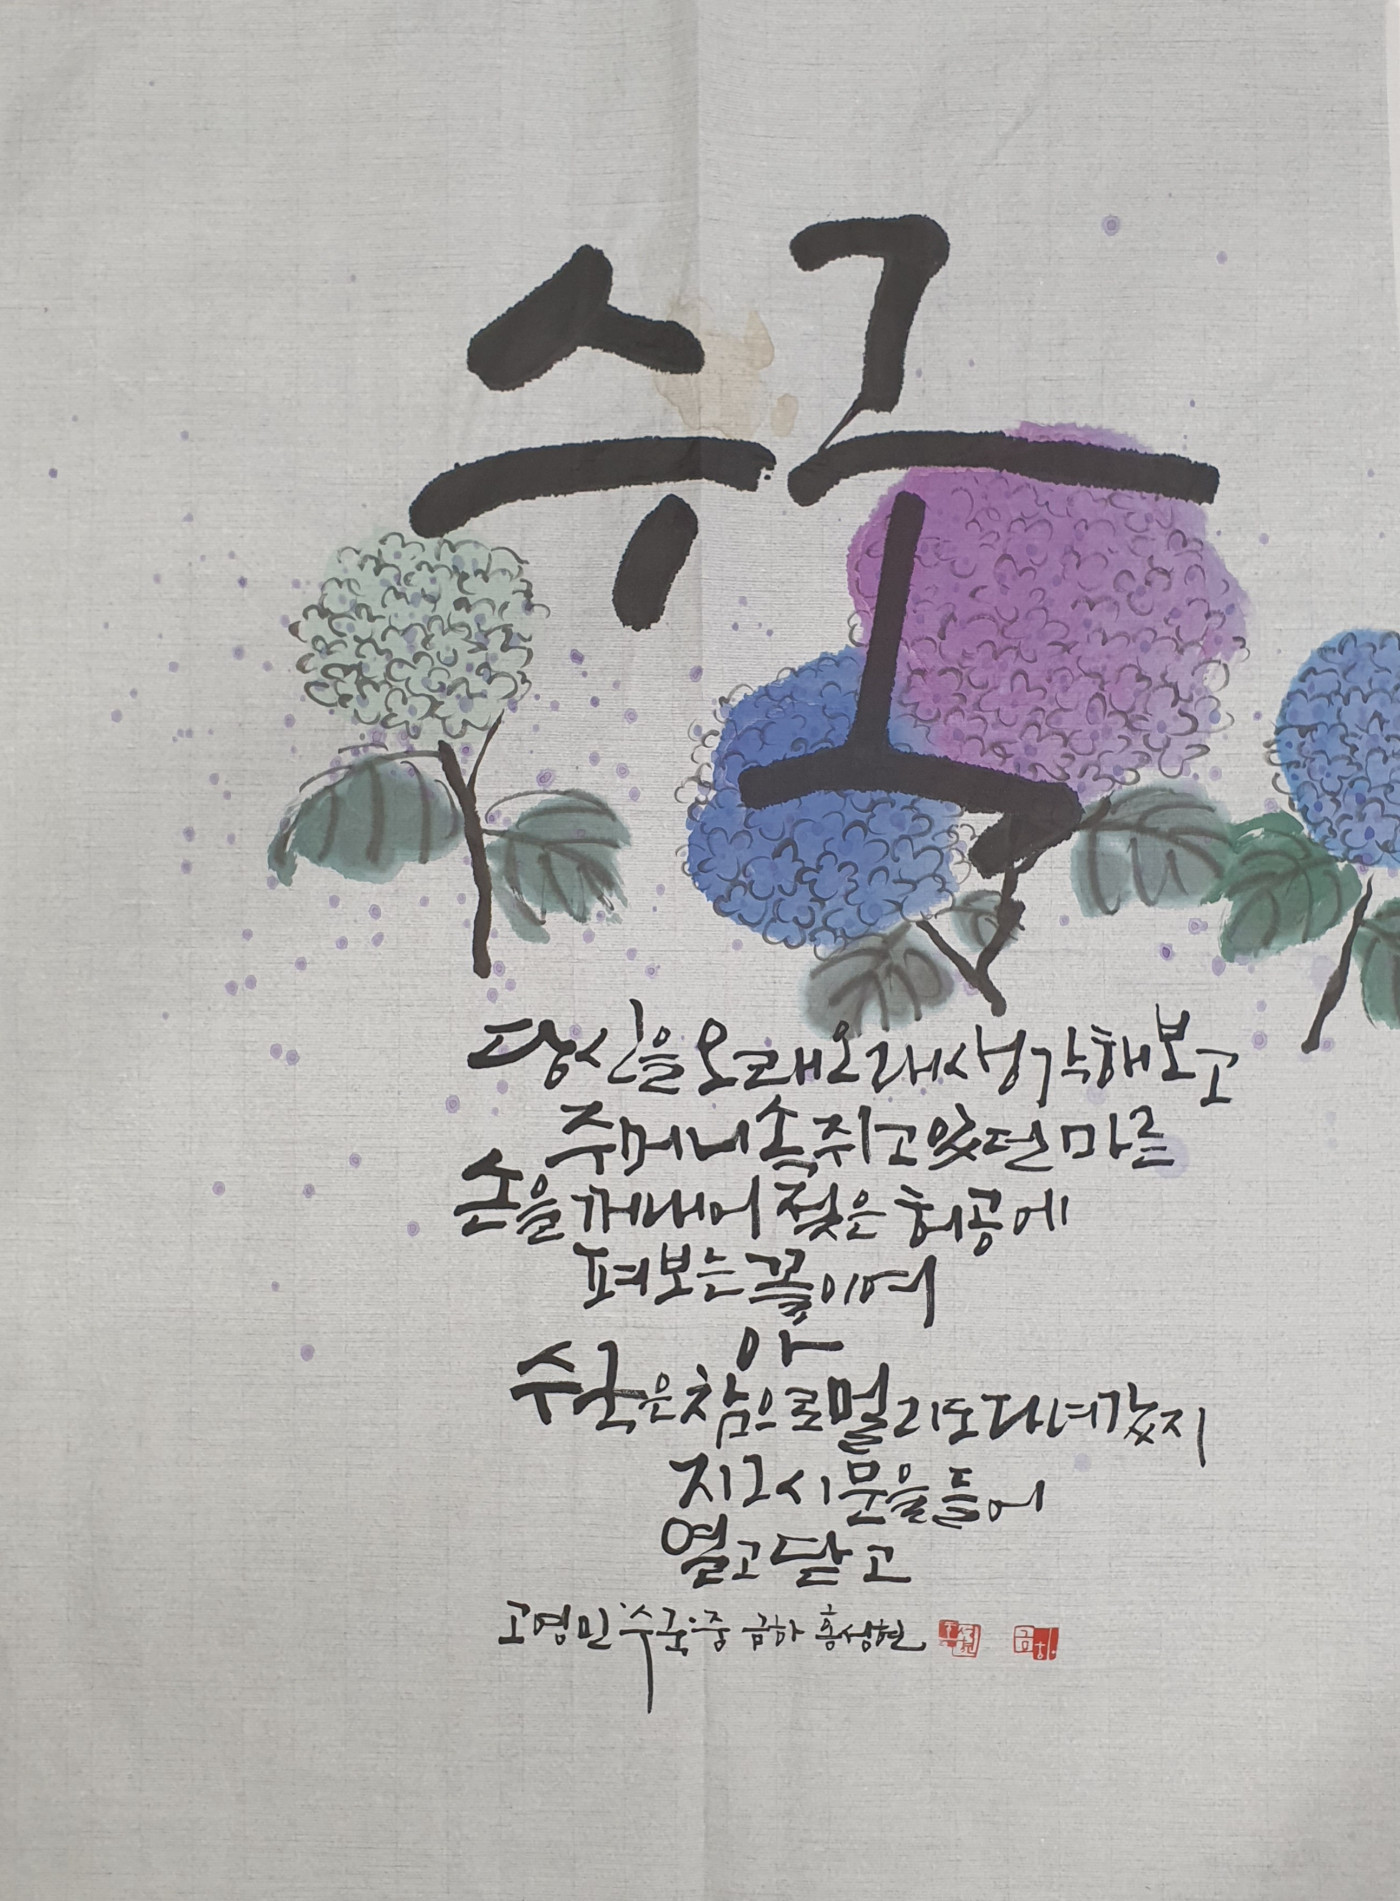 수국
당신을 오래오래 생각해보고
주머니 속 쥐고 있던 마른
손을 꺼내어 젖은 허공에
펴보는 꼴이여
아
수국은 참으로 멀리도 다녀갔지
지그시 문을 들어
열고 닫고
고영민 '수국' 중 금하 홍성현
금하